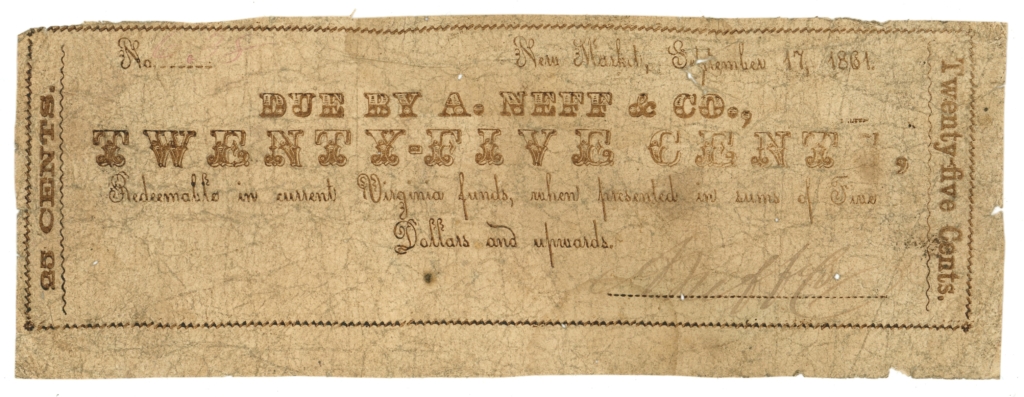 No.
New Market, September 17, 1861.
DUE BY A. NEFF & CO.,
TWENTY-FIVE CENTS,
Redeemable in current Virginia funds, when presented in sums of Five
Dollars and upwards.
25 CENTS.
Twenty-five Cents.